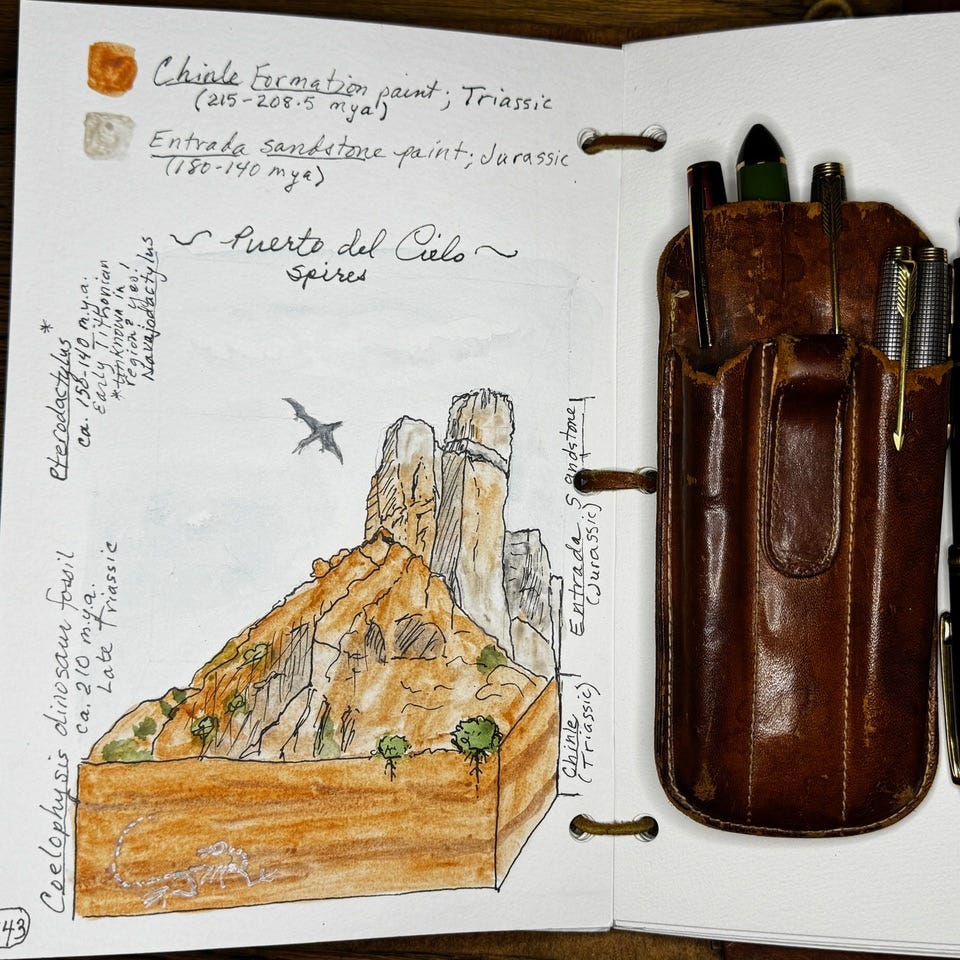 Chinle Formation paint; Triassic
(215-208.5 mya)
Entrada sandstone paint; Jurassic
(180-140 mya)
~ Puerto del Cielo ~
Spires
Pterodactylus *
ca. 150-140 m.y.a.
Early Tithonian
*Unknown in
region? Yes!
Navajodactylus
Entrada Sandstone
(Jurassic)
Chinle
(Triassic)
Coelophysis dinosaur fossil
ca. 210 m.y.a.
Late Triassic
43